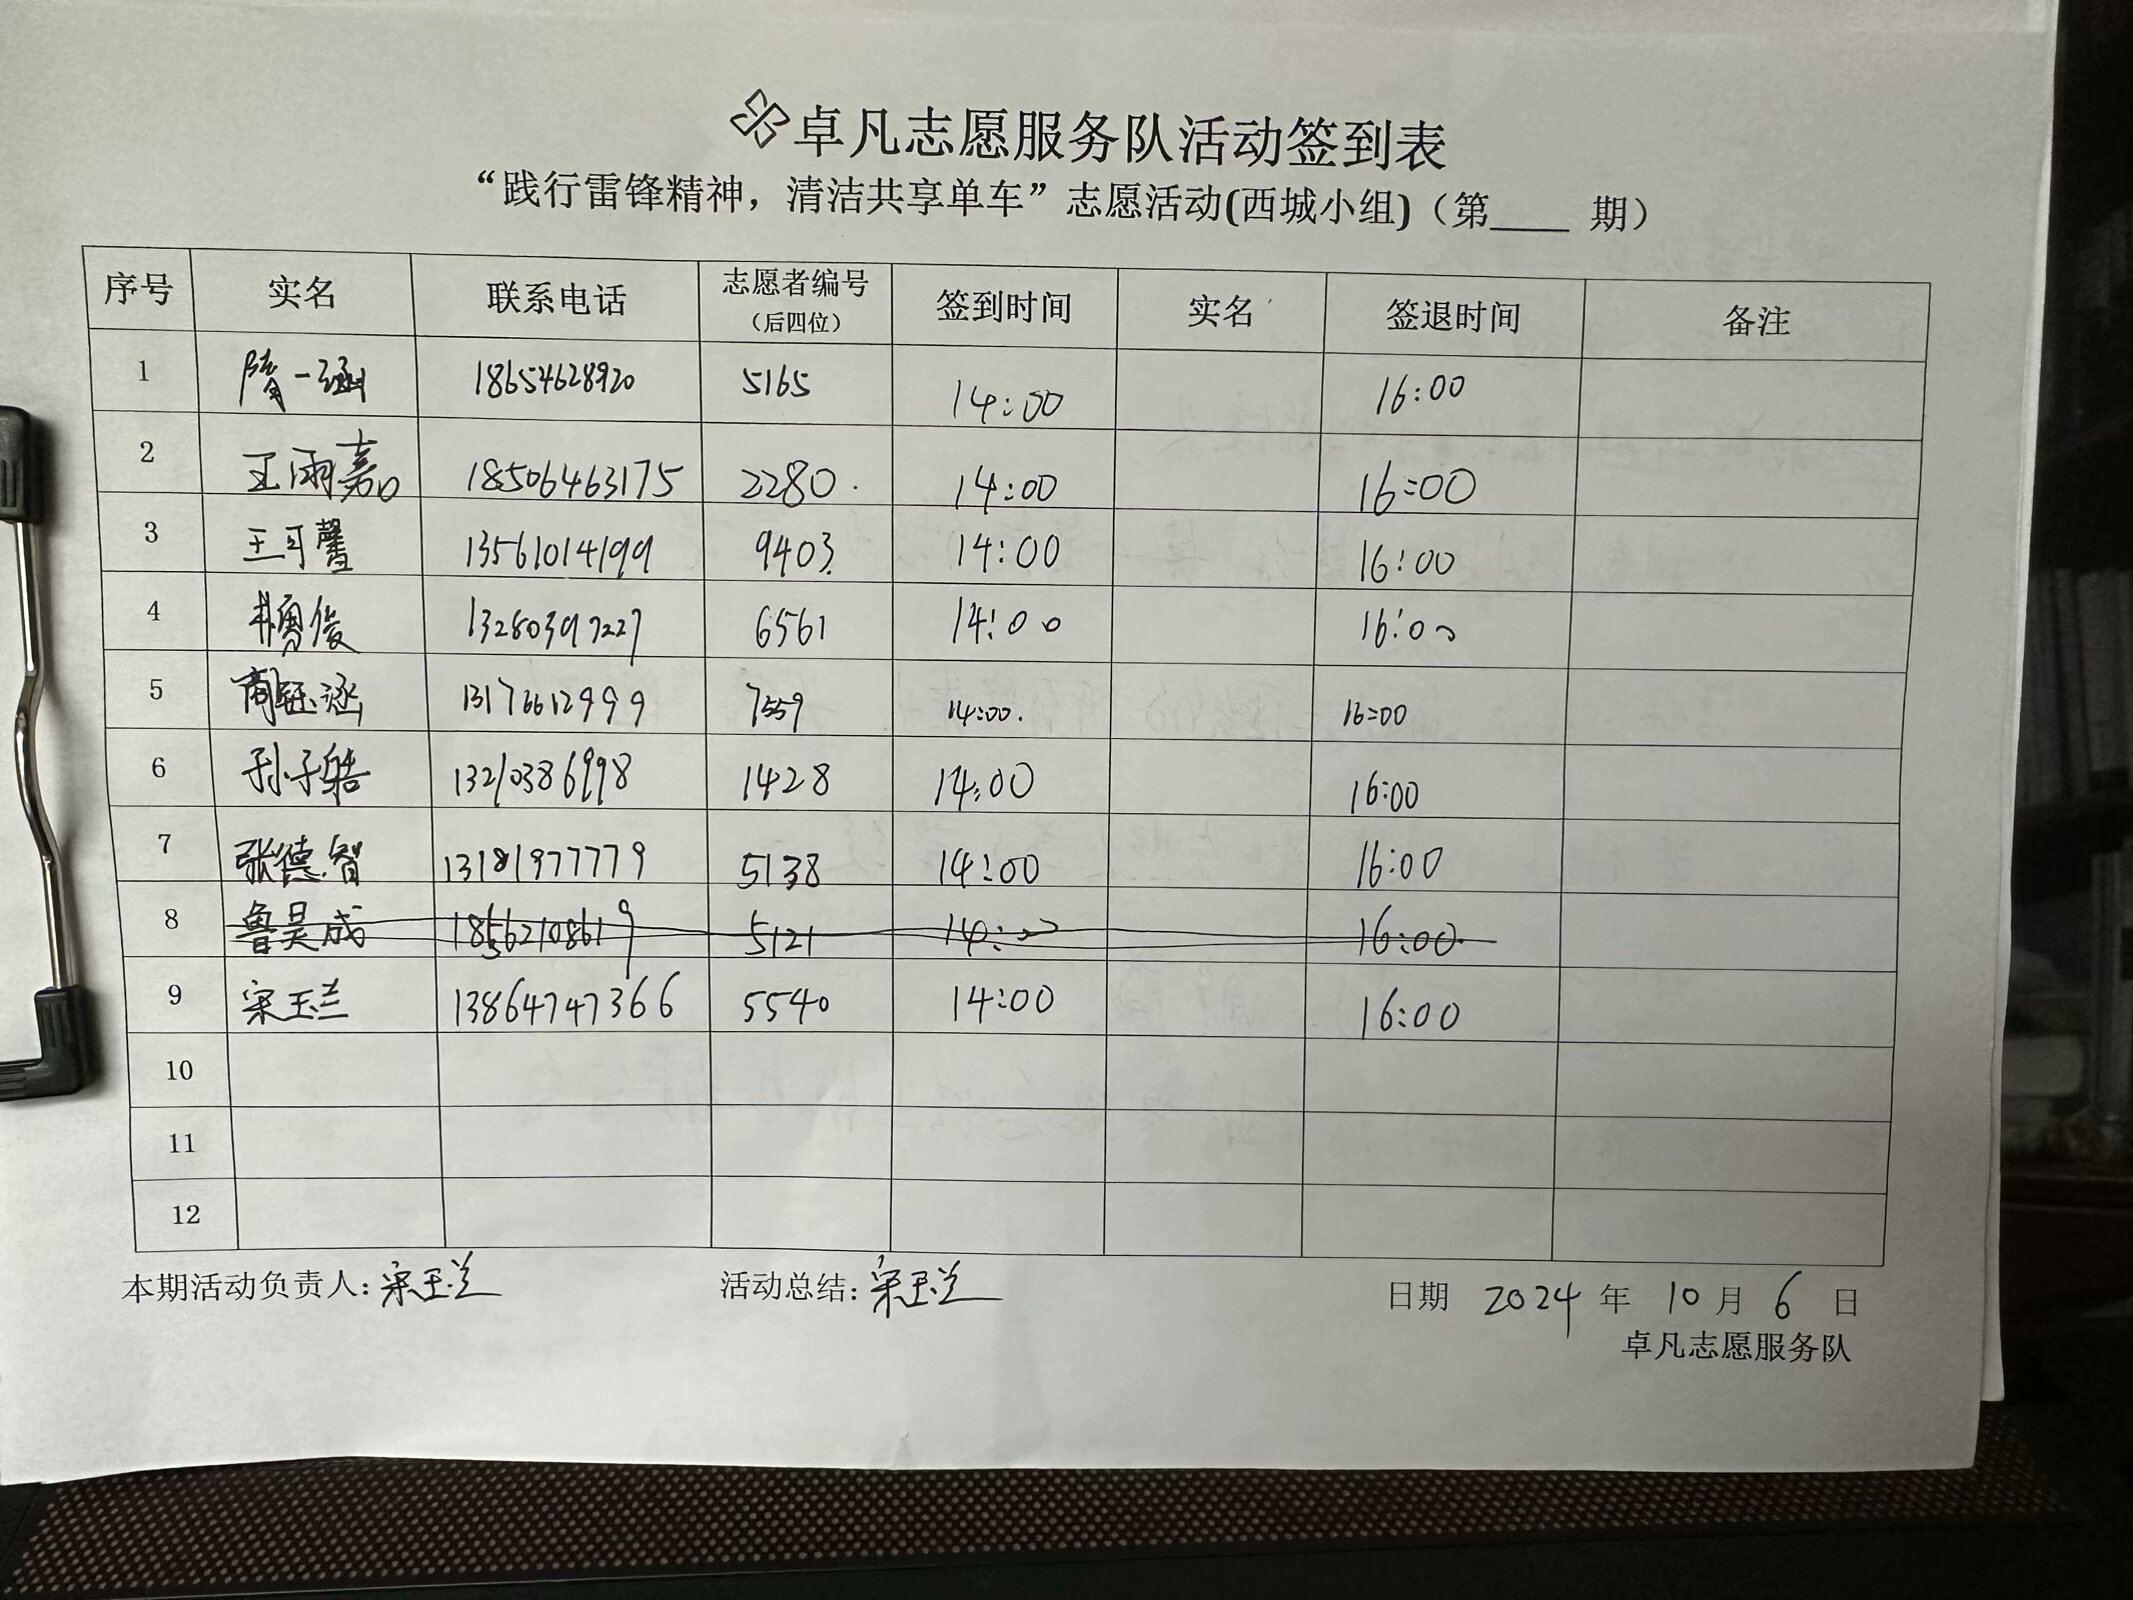 卓凡志愿服务队活动签到表
“践行雷锋精神，清洁共享单车”志愿活动(西城小组)（第____ 期）
序号 实名 联系电话 志愿者编号（后四位） 签到时间 实名 签退时间 备注
1 隋一涵 18654628920 5165 14:00 16:00
2 王雨嘉 18506463175 2280 14:00 16:00
3 王可馨 13561014199 9403 14:00 16:00
4 13280397227 6561 14:00 16:00
5 周钰涵 13176612999 7559 14:00 16:00
6 孙子皓 13210386998 1428 14:00 16:00
7 张德智 13181977779 5138 14:00 16:00
8 鲁昊成 5121 14:00 16:00
9 宋玉兰 13864747366 5540 14:00 16:00
10
11
12
本期活动负责人：宋玉兰 活动总结：宋玉兰 日期 2024 年 10 月 6 日
卓凡志愿服务队